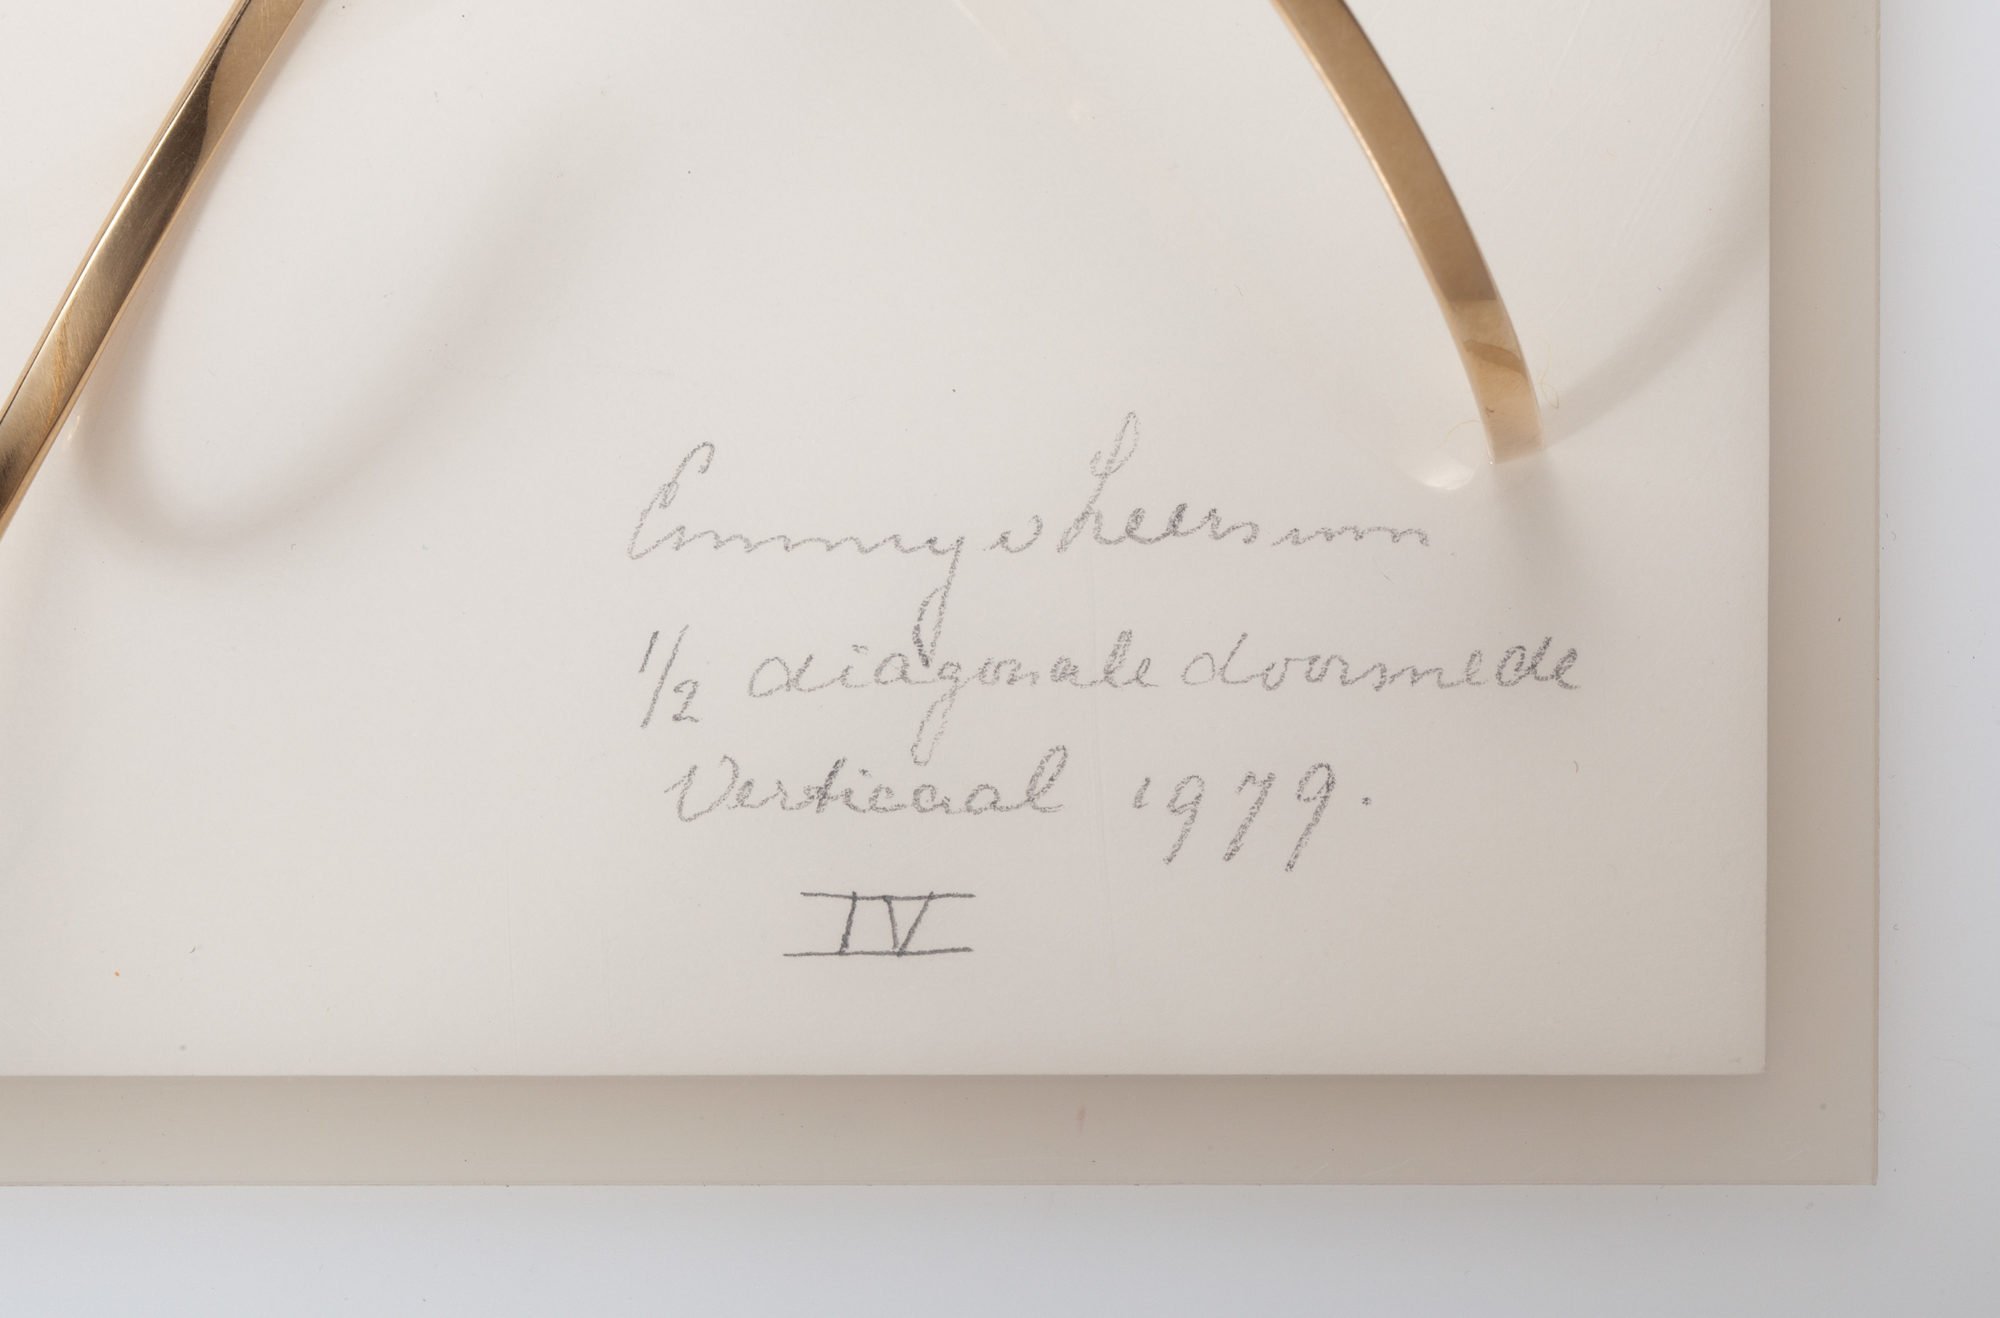 Emmy v Leersum
1/2 diagonale doorsnede
Verticaal 1979.
IV